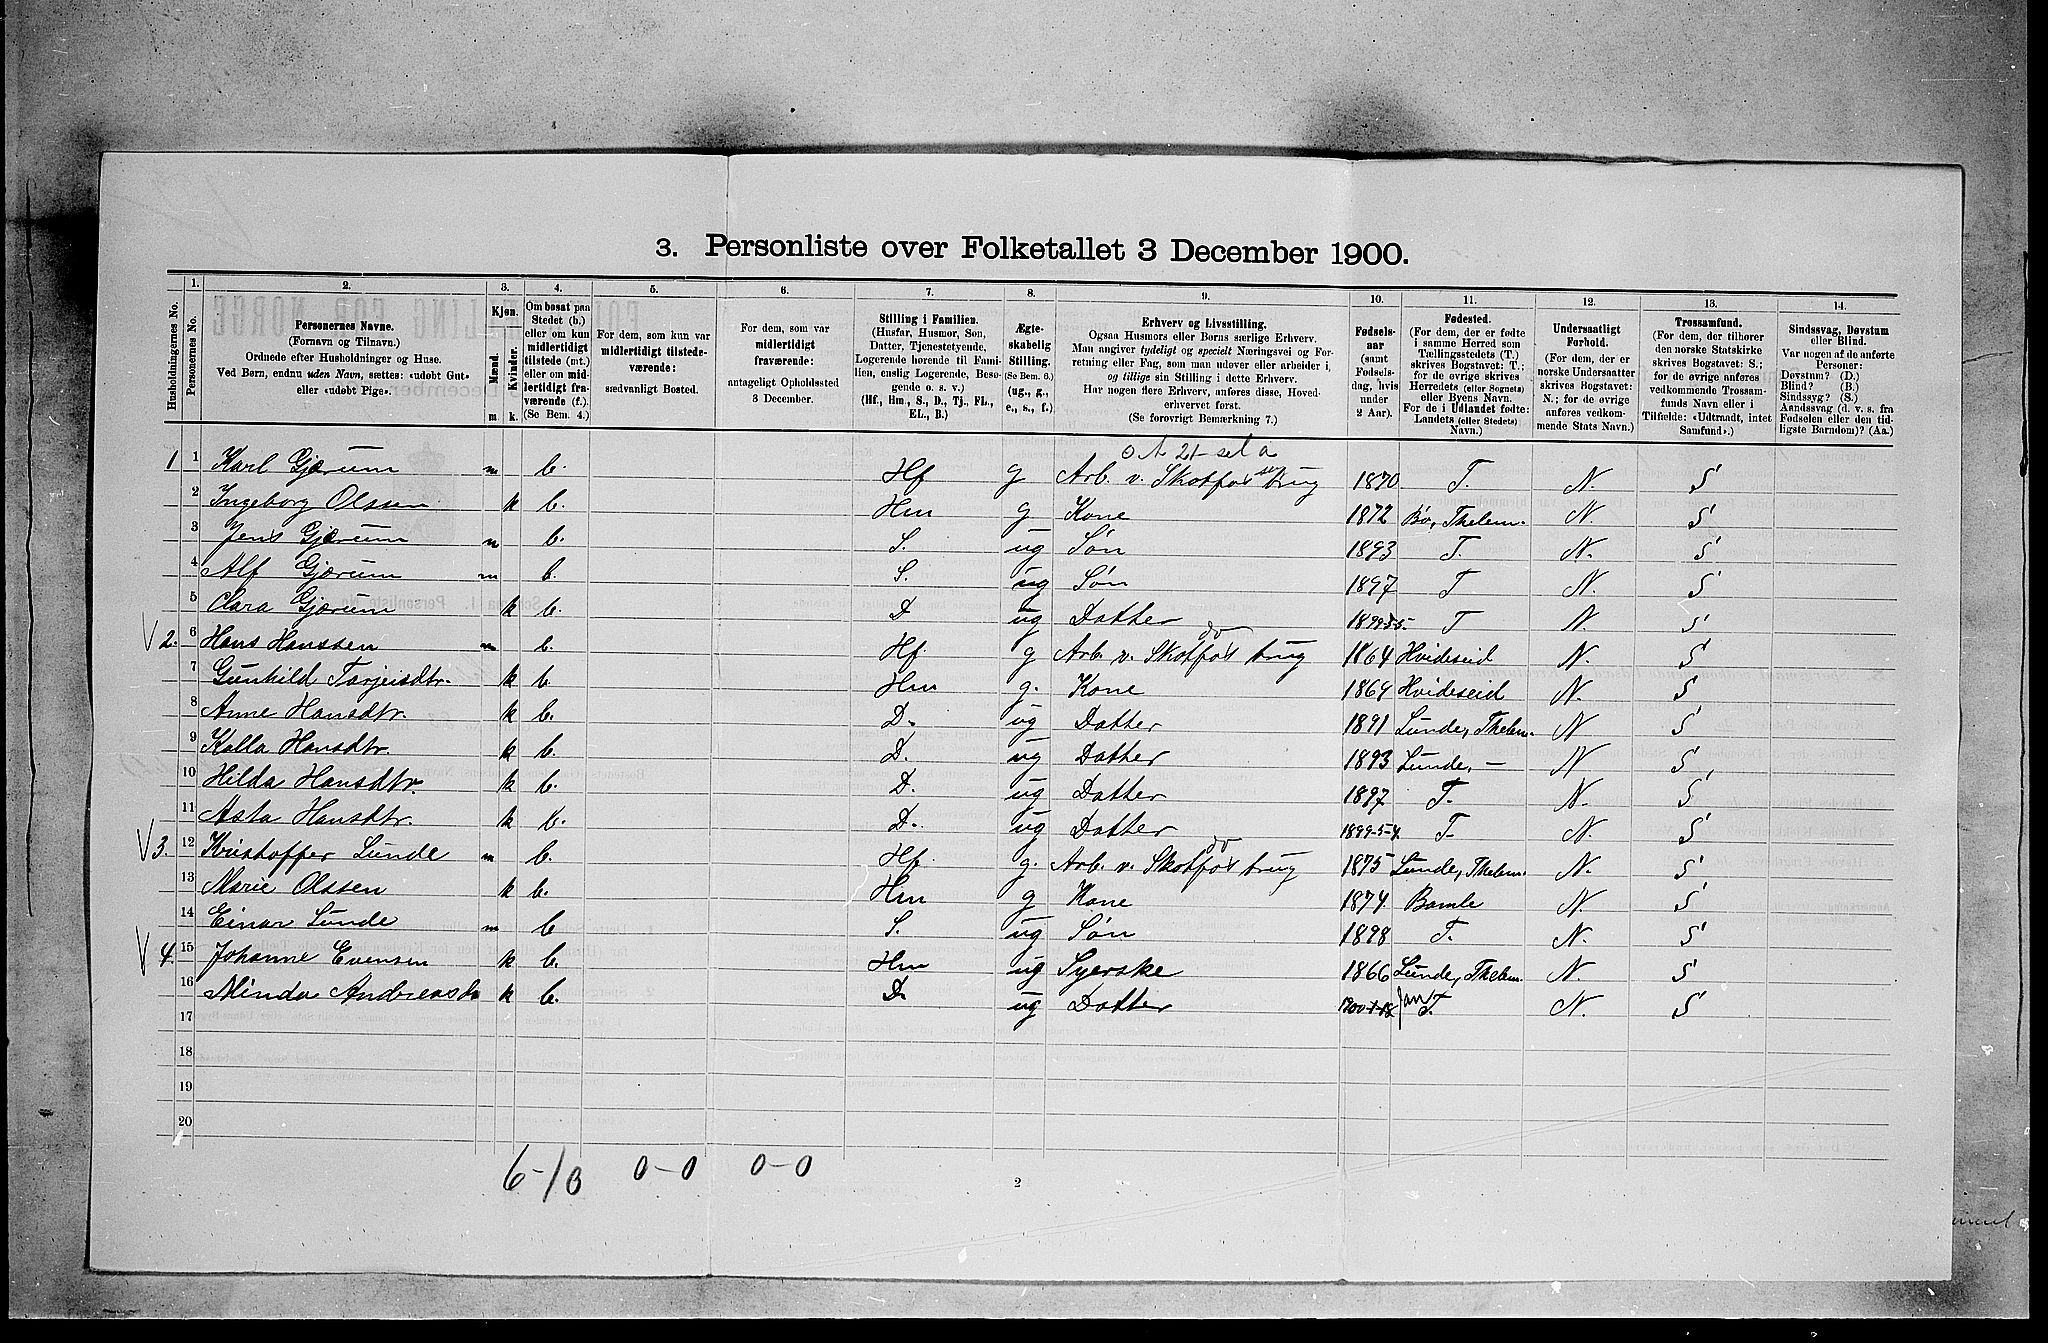 3. Personliste over Folketallet 3 December 1900.
Husholdningernes No.
1. Personernes No.
2. Personernes Navne.
(Fornavn og Tilnavn.)
Ordnede efter Husholdninger og Huse.
Ved Børn, endnu uden Navn, sættes: «udøbt Gut»
eller «udøbt Pige».
3. Kjøn.
Mænd. Kvinder.
m. k.
4. Om bosat paa
Stedet (b.)
eller om kun
midlertidigt
tilstede (mt.)
eller om mid-
lertidigt fra-
værende (f.)
(Se Bem. 4.)
5. For dem, som kun var
midlertidigt tilstede-
værende:
sædvanligt Bosted.
6. For dem, som var
midlertidigt
fraværende:
antageligt Opholdssted
3 December.
7. Stilling i Familien.
(Husfar, Husmor, Søn,
Datter, Tjenestetyende,
Logerende hørende til Fami-
lien, enslig Logerende, Besø-
gende o. s. v.)
(Hf, Hm, S., D., Tj., FL.,
EL., B.)
8. Ægte-
skabelig
Stilling.
(Se Bem. 6.)
(ug., g.,
e., s., f.)
9. Erhverv og Livsstilling.
Ogsaa Husmors eller Børns særlige Erhverv.
Man angiver tydeligt og specielt Næringsvei og For-
retning eller Fag, som man udøver eller arbeider i,
og tillige sin Stilling i dette Erhverv.
Har nogen flere Erhverv, anføres disse, Hoved-
erhvervet først.
(Se forøvrigt Bemærkning 7.)
10. Fødsels-
aar
(samt
Fødsels-
dag, hvis
under
2 Aar).
11. Fødested.
(For dem, der er fødte
i samme Herred som
Tællingsstedets (T.)
skrives Bogstavet: T.;
for de øvrige skrives
Herredets (eller Sognets)
eller Byens Navn.
For de i Udlandet fødte:
Landets (eller Stedets)
Navn.)
12. Undersaatligt
Forhold.
(For dem, der er
norske Undersaatter
skrives Bogstavet:
N.; for de øvrige
anføres vedkom-
mende Stats Navn.)
13. Trossamfund.
(For dem, der tilhører
den norske Statskirke
skrives Bogstavet: S.;
for de øvrige anføres
vedkommende Trossam-
funds Navn eller i
Tilfælde: «Udtraadt, intet
Samfund».)
14. Sindssvag, Døvstum
eller Blind.
Var nogen af de anførte
Personer:
Døvstum? (D.)
Blind? (B.)
Sindssyg? (S.)
Aandssvag (d. v. s. fra
Fødselen eller den tid-
ligste Barndom)? (Aa.)
1 1 Karl Gjærum m b. Hf g Arb. v. Skotfos brug 1870 T. N. S
2 Ingeborg Olssen k b. Hm g Kone 1872 Bø, Thelem. N. S
3 Jens Gjærum m b. S. ug Søn 1893 T. N. S
4 Alf Gjærum m b. S. ug Søn 1897 T N. S
5 Clara Gjærum k b. D ug Datter 1899-5-5- T N. S
V 2. 6 Hans Hanssen m b. Hf. g Arb. v. Skotfos do brug 1864 Hvideseid N. S
7 Gunhild Tarjeisdtr. k b. Hm g. Kone 1864 Hvideseid N. S
8 Anne Hansdtr. k b. D. ug Datter 1891 Lunde, Thelem. N S
9 Kalla Hansdtr. k b. D. ug Datter 1893 Lunde, — N S
10 Hilda Hansdtr. k b. D. ug Datter 1897 T. N. S
11 Asta Hansdtr. k b. D. ug Datter 1899-5-4. T. N. S
V 3. 12 Kristoffer Lunde m b. Hf. g. Arb. v. Skotfos do brug 1875 Lunde, Thelem. N. S
13 Marie Olssen k b. Hm g Kone 1874. Bamle N. S
14 Einar Lunde m b S. ug Søn 1898 T. N. S
V 4. 15 Johanne Evensen k b. Hm ug Syerske 1866 Lunde, Thelem N. S
16 Minda Andreasd k b. D. ug Datter Jan T. N. S
17
18
19
20
6-10 0-0 0-0
2